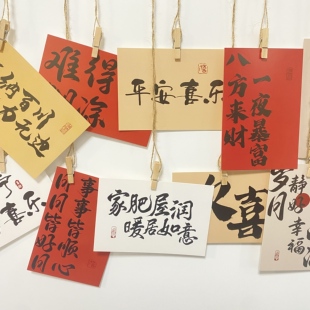 纳百川
无边
难得
涂
平安喜乐
一夜暴富
八方来财
喜乐
事事皆顺心
皆好
家肥屋润
暖居如意
喜
岁月
静好
幸福